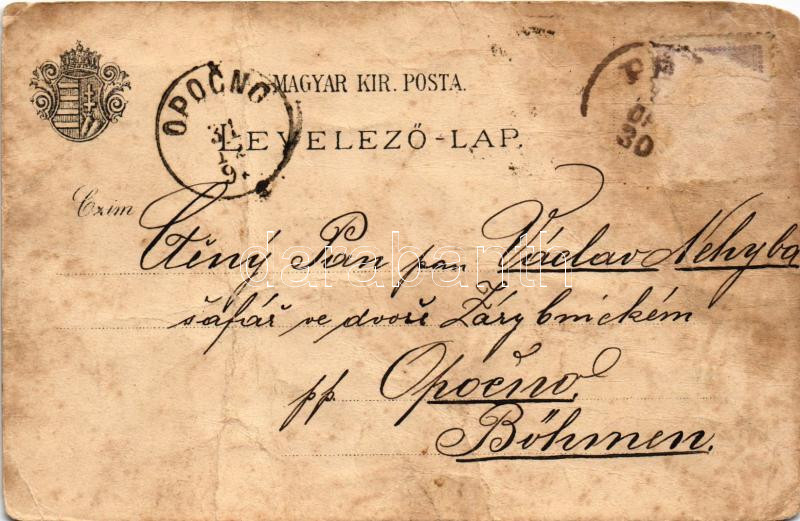 MAGYAR KIR. POSTA.
LEVELEZŐ-LAP.
OPOČNO
31
12
9
30
Czim
Ctěný Pan pan Václav Nehyba
šafář ve dvoře Zárybnickém
pp. Opočno,
Böhmen.
darabanth